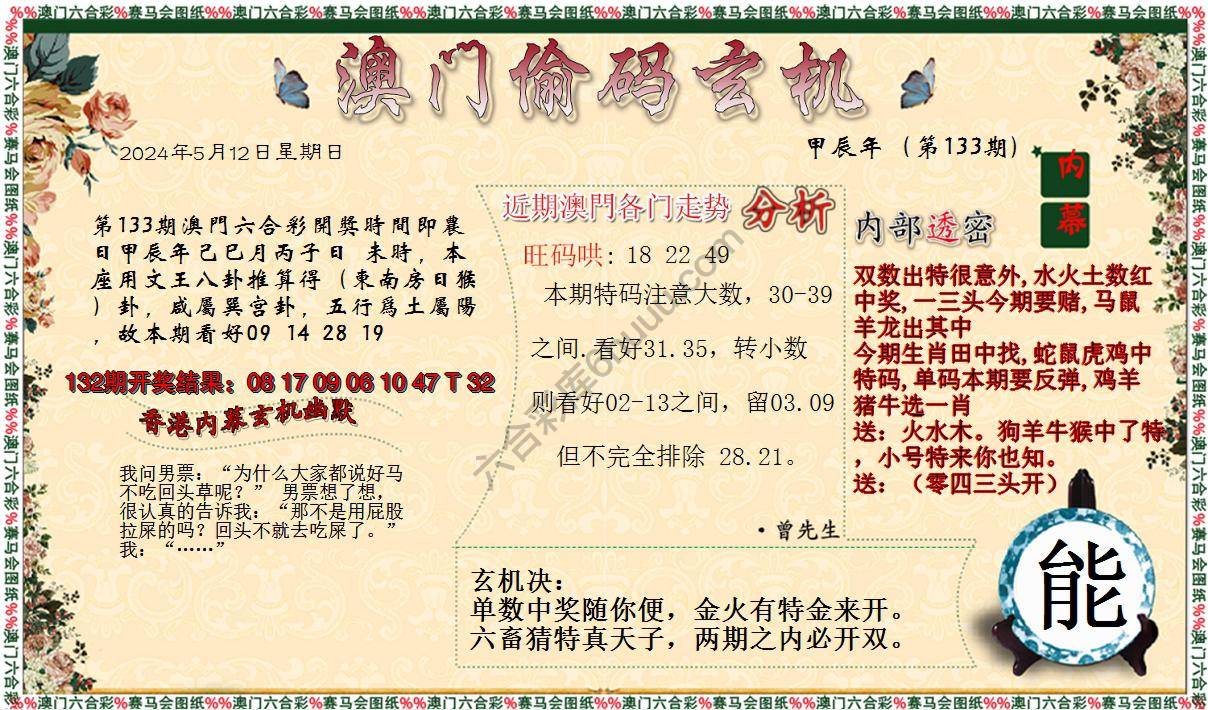 %%澳门六合彩%赛马会图纸%%澳门六合彩%赛马会图纸%%澳门六合彩%赛马会图纸%%澳门六合彩%赛马会图纸%%澳门六合彩%赛马会图纸
澳门偷码玄机
2024年5月12日星期日
甲辰年（第133期）
内幕
第133期澳門六合彩開獎時間即農
日甲辰年己巳月丙子日 未時，本
座用文王八卦推算得（東南房日猴
）卦，咸屬巽宫卦，五行爲土屬陽
，故本期看好09 14 28 19
132期开奖结果：08 17 09 06 10 47 T 32
香港内幕玄机幽默
我问男票：“为什么大家都说好马
不吃回头草呢？” 男票想了想，
很认真的告诉我：“那不是用屁股
拉屎的吗？回头不就去吃屎了。”
我：“……”
近期澳門各门走势 分析
旺码哄: 18 22 49
本期特码注意大数，30-39
之间.看好31.35，转小数
则看好02-13之间，留03.09
但不完全排除 28.21。
·曾先生
内部透密
双数出特很意外,水火土数红
中奖,一三头今期要赌,马鼠
羊龙出其中
今期生肖田中找,蛇鼠虎鸡中
特码,单码本期要反弹,鸡羊
猪牛选一肖
送：火水木。狗羊牛猴中了特
，小号特来你也知。
送：（零四三头开）
玄机决：
单数中奖随你便，金火有特金来开。
六畜猜特真天子，两期之内必开双。
能